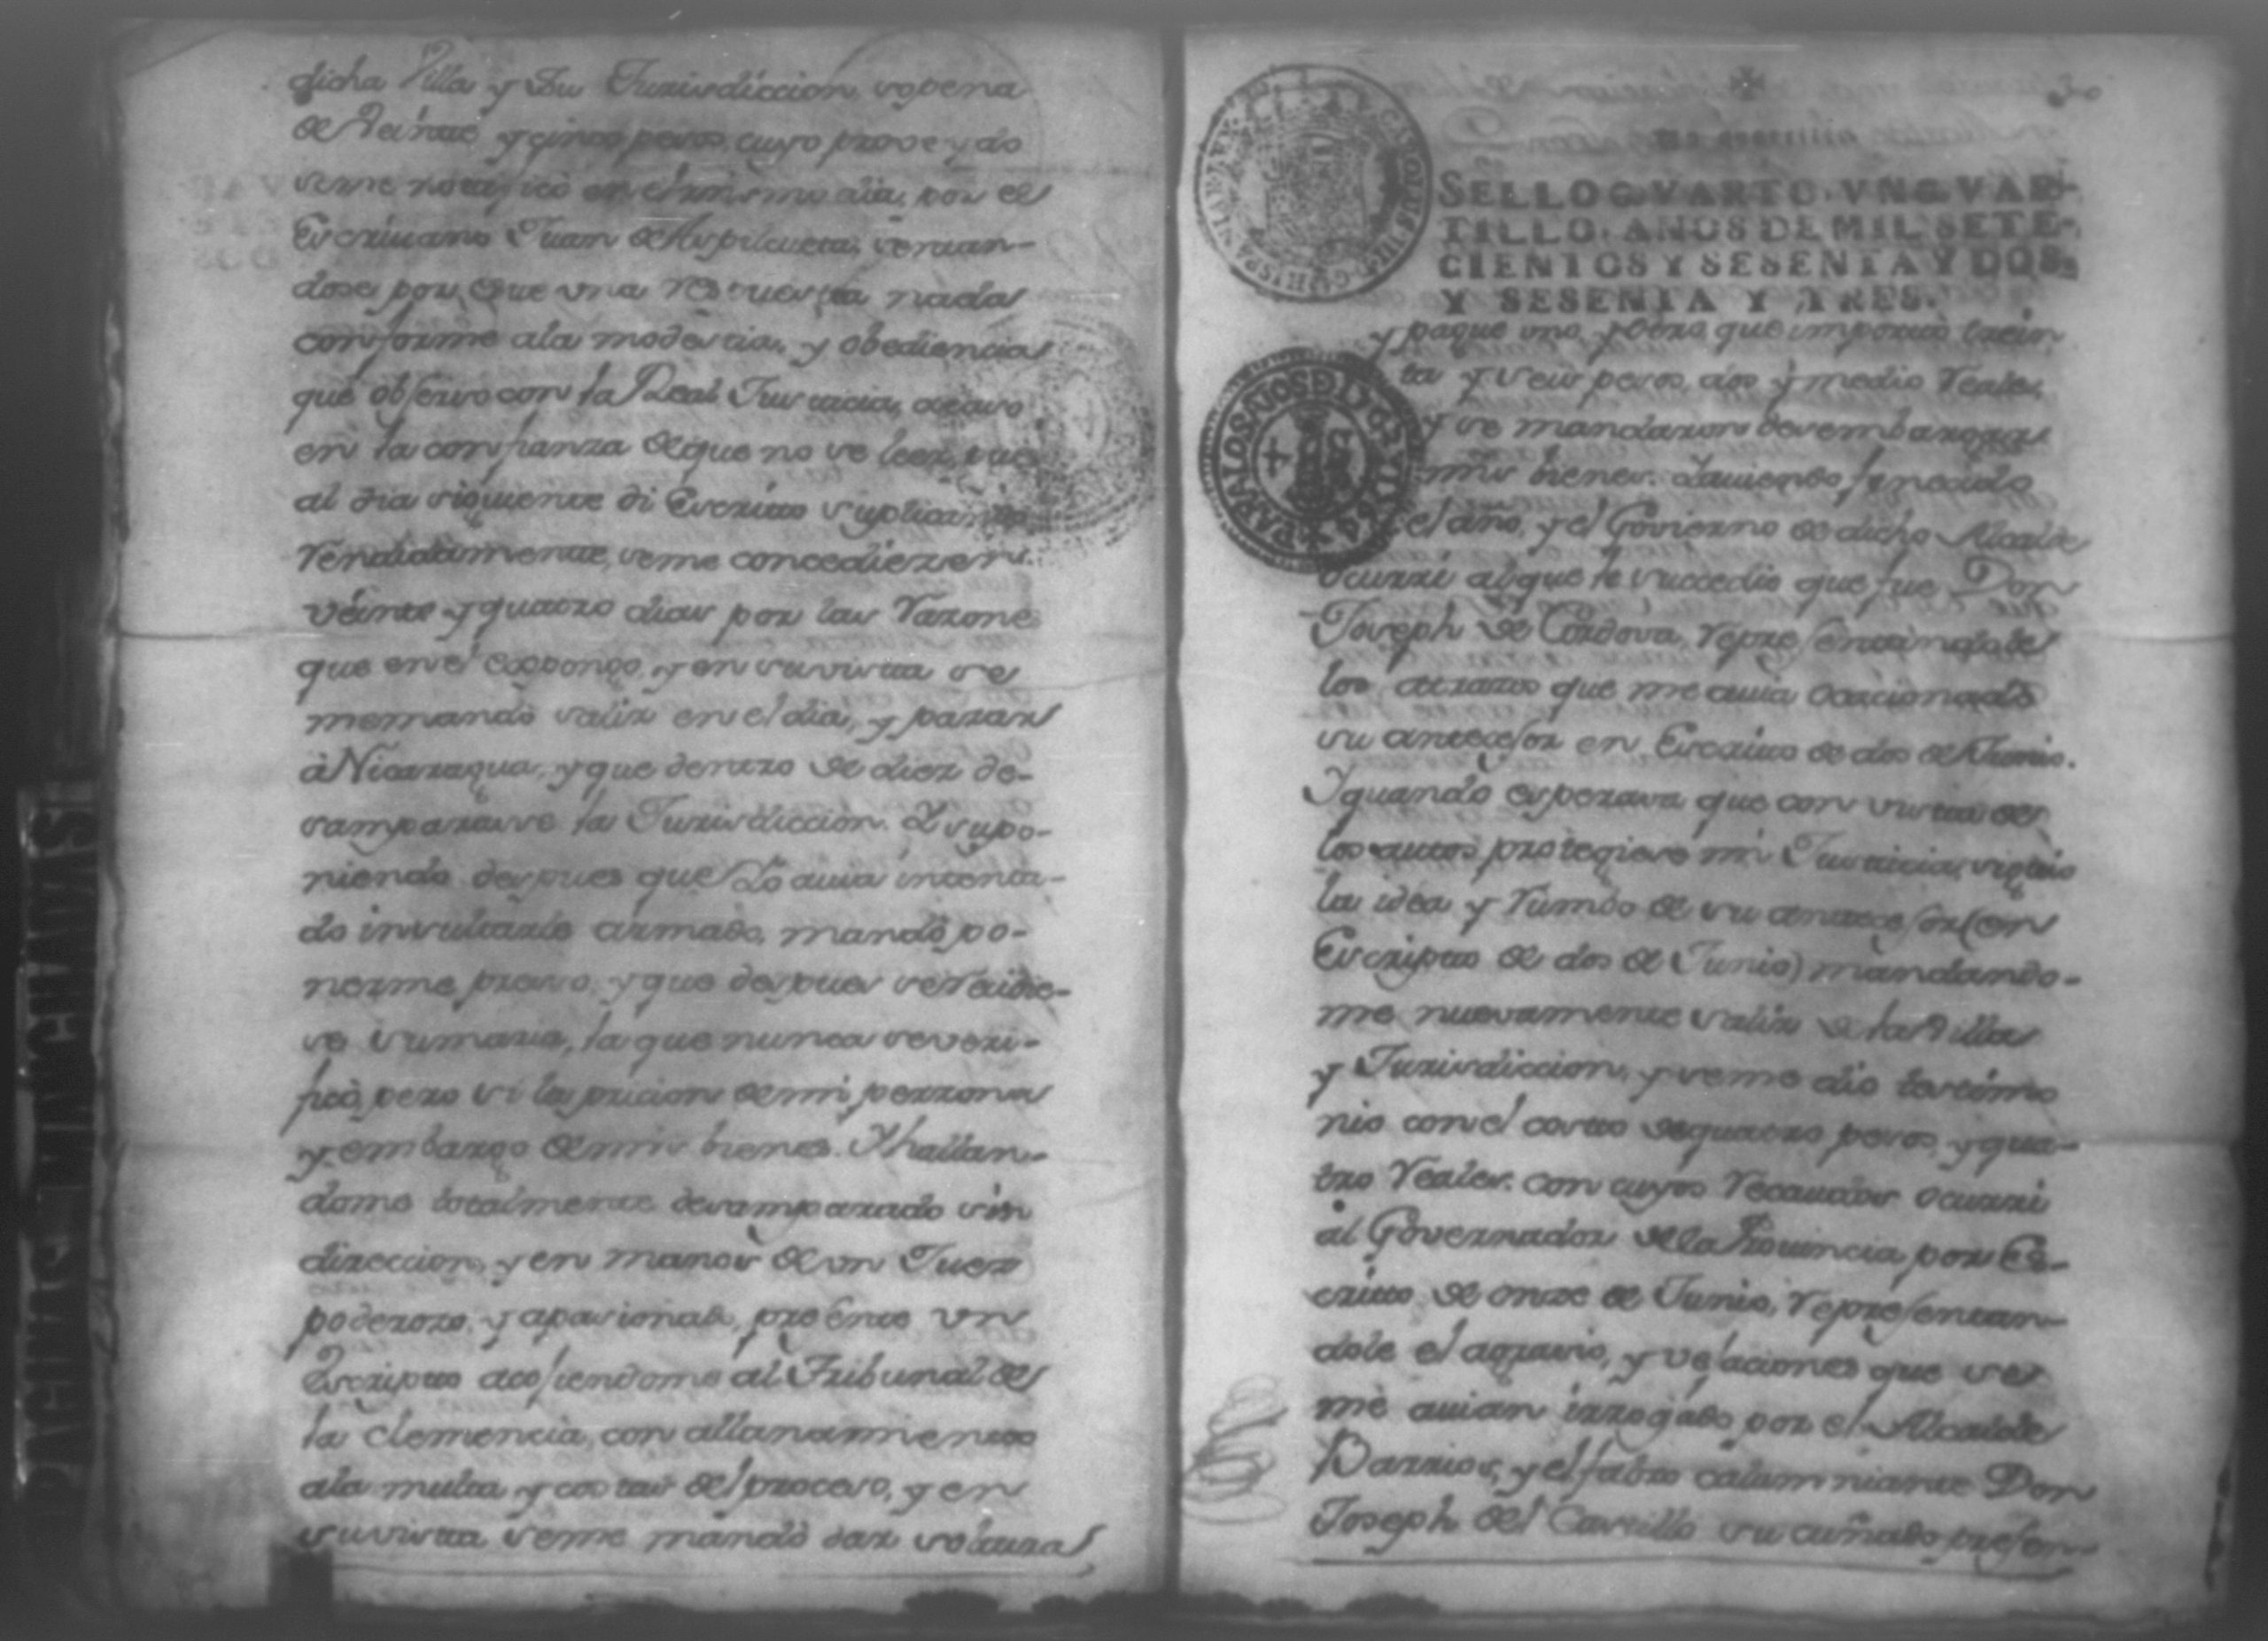 dicha Villa y Su Jurisdiccion, sopena
de Veinte, y cinco pesos, cuyo proveydo
seme notificò en el mismo dia, por el
Escrivano Juan de Aspilcueta, sentan-
dose por que una respuesta nada
conforme ala modestia, y obediencia
que observo con la Real Justicia, acaso
en la confianza de que no se leer, y
al dia siguiente di Escritto suplicando
rendidamente, seme concediesen
veinte y quatro dias por las razones
que en el expongo, y en su vista se
memandò salir en el dia, y pasar
à Nicaragua, y que dentro de diez de-
samparasse la Jurisdiccion. Y supo-
niendo despues que Yo avia intenta-
do insultarle armado, mandò po-
nerme preso, y que despues se recivie-
se sumaria, la que nunca se veri-
ficò, pero si la pricion de mi persona
y embargo de mis bienes. Y hallan-
dome totalmente desamparado sin
direccion, y en manos de un Juez
poderozo, y apasionado, presente un
Escripto acojiendome al Tribunal de
la clemencia, con allanamiento
ala multa y costas del proceso, y en
su vista seme mandò dar soltura
SELLO QVARTO, VN QVAR-
TILLO, AÑOS DE MIL SETE-
CIENTOS Y SESENTA Y DOS,
Y SESENTA Y TRES.
CAROLUS III D G HISPANIAR REX
PARA LOS AÑOS D 1764 Y
y paque uno, y otro que importò trein
ta y seis pesos, dos y medio reales,
y se mandaron desembargar
mis bienes. Haviendo fenecido
el año, y el Govierno de dicho Alcalde
ocurri al que le succedio que fue Don
Joseph de Cordova, representandole
los atrasos que me avia ocacionado
su antecesor en Escritto de dos de Junio.
Y quando esperava que con vista de
los autos protegiese mi Justicia, siguio
la idea y rumbo de su antecesor (en
Escripto de dos de Junio) mandando-
me nuevamente salir de la Villa
y Jurisdiccion, y seme dio testimo
nio con el costto de quatro pesos, y qua-
tro reales. con cuyos recaudos ocurri
al Governador de la Provincia por Es-
critto de onze de Junio, representan-
dole el agravio, y vejaciones que se
me avian irrogado por el Alcalde
Barrios, y el falzo calumniante Don
Joseph del Castillo su cuñado, presen